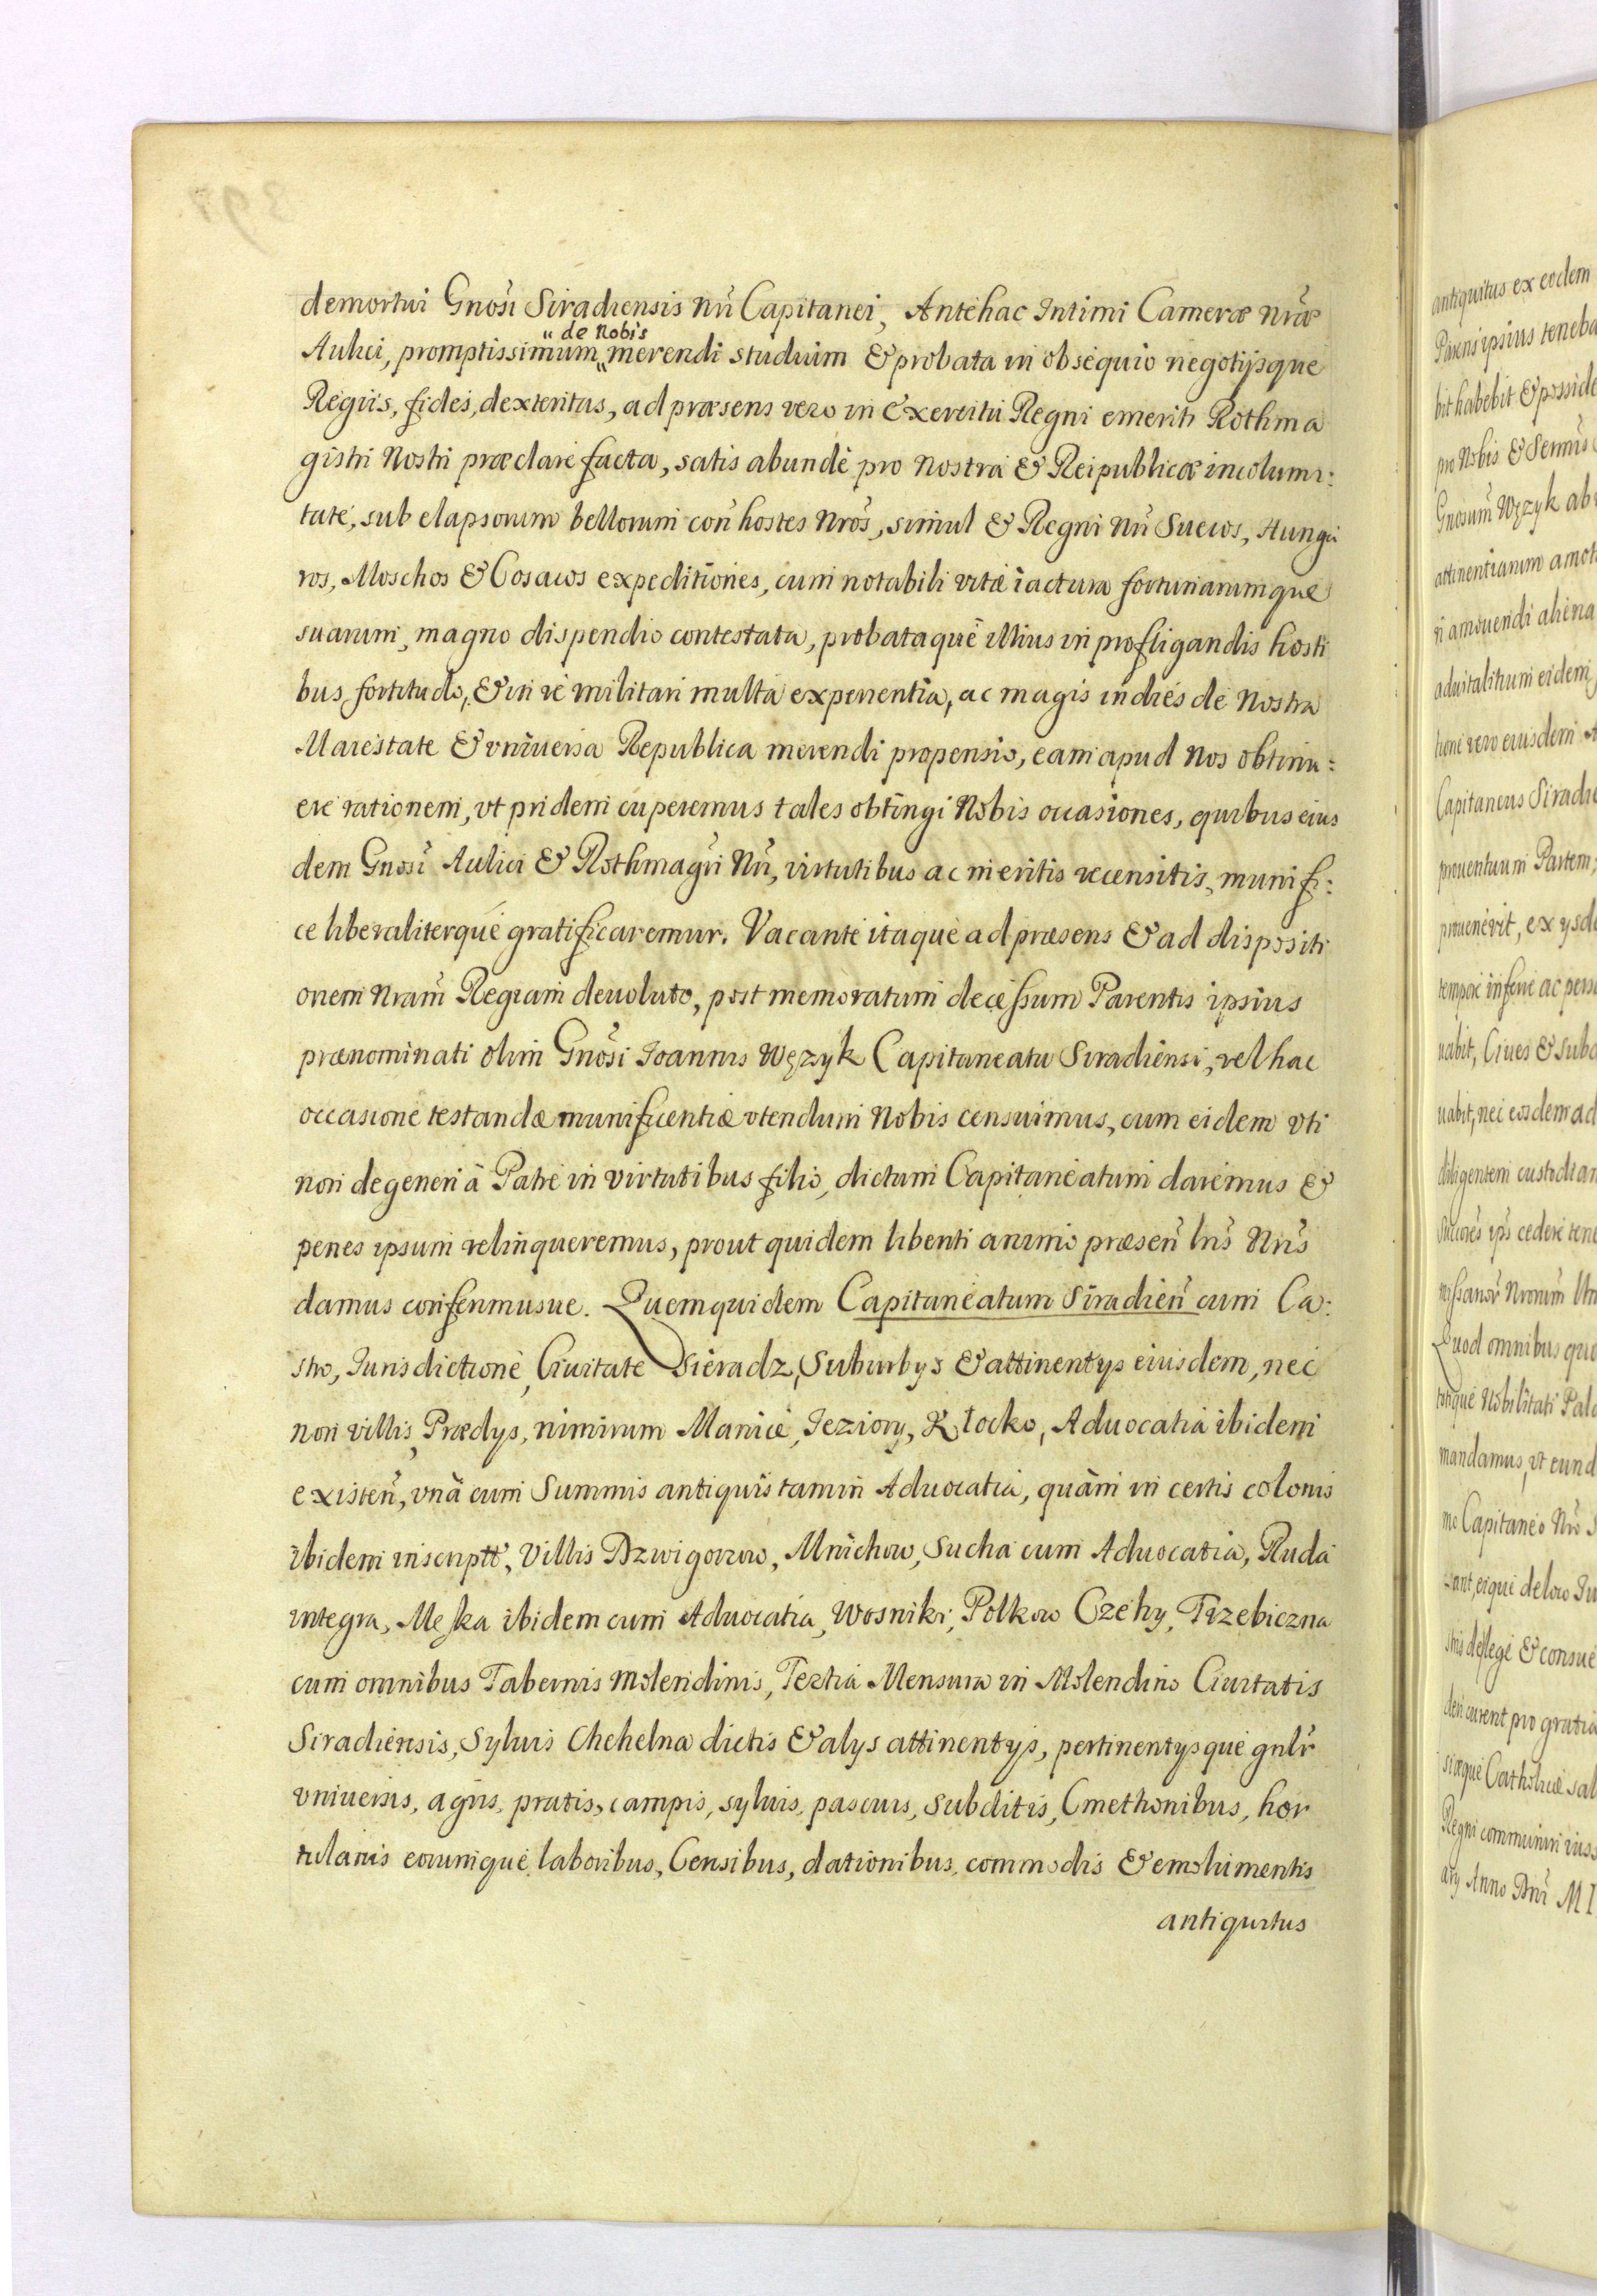 demortui Gnosi Siradiensis nri Capitanei, Antehac Intimi Cameræ nræ
" de Nobis
Aulici, promptissimum „ merendi studium & probata in obsequio negotijsque
Regiis, fides, dexteritas, ad præsens vero in Exercitu Regni emeriti Rothma
gistri Nostri præclare facta, satis abundè pro Nostra & Reipublicæ incolumi:
tate, sub elapsorum bellorum con hostes Nros, simul & Regni Nri Suecos, Hunga
ros, Moschos & Cosacos expeditiones, cum notabili vitæ iactura fortunarumque
suarum, magno dispendio contestata, probataque illius in profligandis hosti
bus fortitudo, & in re militari multa experientia, ac magis indies de Nostra
Maiestate & vniuersa Republica merendi propensio, eam apud Nos obtinu:
ere rationem, vt pridem cuperemus tales obtingi Nobis occasiones, quibus eius
dem Gnosi Aulici & Rothmagri Nri, virtutibus ac meritis recensitis, munifi:
ce liberaliterque gratificaremur. Vacante itaque ad præsens & ad dispositi
onem Nram Regiam deuoluto, post memoratum decessum Parentis ipsius
prænominati olim Gnosi Joannis Wężyk Capitaneatu Siradiensi, vel hac
occasione testandæ munificentiæ vtendum Nobis censuimus, cum eidem vti
non degeneri à Patre in virtutibus filio, dictum Capitaneatum daremus &
penes ipsum relinqueremus, prout quidem libenti animo præsen lris Nris
damus conferimusue. Quemquidem Capitaneatum Siradien cum Ca:
stro, Jurisdictione, Ciuitate Sieradz, Suburbys & attinentys eiusdem, nec
non villis, Prædys, nimirum Manice, Jeziory, Kłocko, Aduocatia ibidem
existen, vnà cum Summis antiquis tam in Aduocatia, quàm in certis colonis
ibidem inscriptt, Villis Dzwigorzow, Mnichow, Sucha cum Aduocatia, Ruda
integra, Męska ibidem cum Aduocatia, Wosniki, Polkow Czehy, Trzebiczna
cum omnibus Tabernis Molendinis, Tertia Mensura in Molendino Ciuitatis
Siradiensis, Syluis Chehelna dictis & alys attinentys, pertinentysque gnlr
vniuersis, agris, pratis, campis, syluis, pascuis, Subditis, Cmethonibus, hor
tulanis eorumque laboribus, Censibus, dationibus, commodis & emolumentis
antiquitus
antiquitus ex eodem
Parens ipsius teneba
bit habebit & posside
pro Nobis & Sermis
Gnosum Wężyk ab
attinentiarum amoti
ri amouendi aliena
aduitalitium eidem
tione vero eiusdem
Capitaneus Siradie
prouentuum Partem,
prouenerit, ex ysde
tempore inferre ac perso
uabit, Ciues & Subd
uabit, nec eosdem ad
diligentem custodiam
Succores ips cedere tene
missanor Nrorum
Quod omnibus quo
totique Nobilitati Pala
mandamus, vt eund
mo Capitaneo Nro S
ant, eique de loco Ju
de lege & consue
curent pro gratia
siæque Catholicæ sal
Regni communiri iuss
ary Anno Dni M